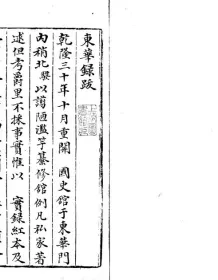 東華錄跋
乾隆三十年十月重開　國史館于東華門
內稍北騏以謭陋濫竽纂修館例凡私家著
述但考爵里不採事實惟以　實錄紅本及